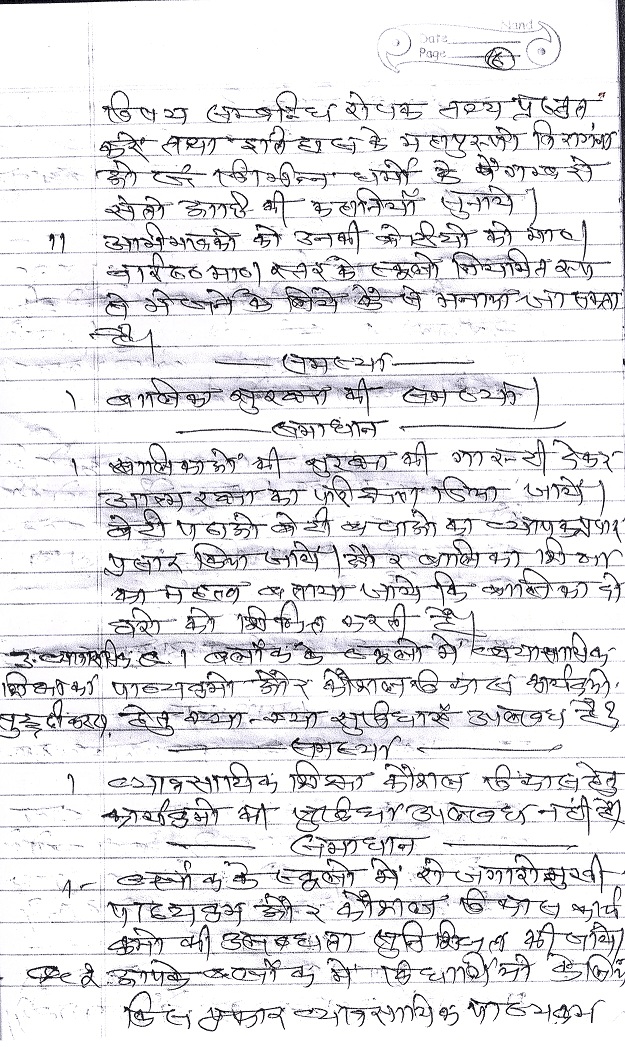 Nand
Date
Page 16
विषय सम्बन्धित रोचक तथ्य प्रस्तुत
करें तथा इतिहास के महापुरुषों विरांगना
ओ एवं विभिन्न धर्मो के पैगम्बरो
खेलो आदि की कहानियाँ सुनाये।
11 अभिभावकों को उनकी बेटीयो को माध्य।
उच्च माध्य। स्तर के स्कूलो नियमित रूप
से भेजने के लिये कैसे मनाया जा सकता
है।
समस्या
1 बालिका सुरक्षा की समस्या।
समाधान
1. बालिकाओं की सुरक्षा की गारन्टी देकर
आत्म रक्षा का परिक्षण दिया जाये।
बेटी पढाओ बेटी बचाओ का व्यापक प्रचार
प्रसार किया जाये। और बालिका शिक्षा
का महत्व बताया जाये कि बालिका दो
घरो को शिक्षित करती है।
3. व्यावसायिक 1 ब्लॉक के स्कूलो में व्यवसायिक
शिक्षा का पाठ्यक्रमो और कौशल विकास कार्यक्रमो
सुदृढीकरण हेतु क्या-क्या सुविधाएँ उपलब्ध है?
समस्या
1 व्यावसायिक शिक्षा कौशल विकास हेतु
कार्यक्रमो की सुविधा उपलब्ध नही है।
समाधान
1- ब्लॉक के स्कूलो में रोजगारोन्मुखी
पाठ्यक्रम और कौशल विकास कार्य
क्रमो की उपलब्धता सुनिश्चित की जाये।
2 आपके ब्लॉक में विधार्थियो के लिये
किस प्रकार व्यावसायिक पाठ्यक्रम